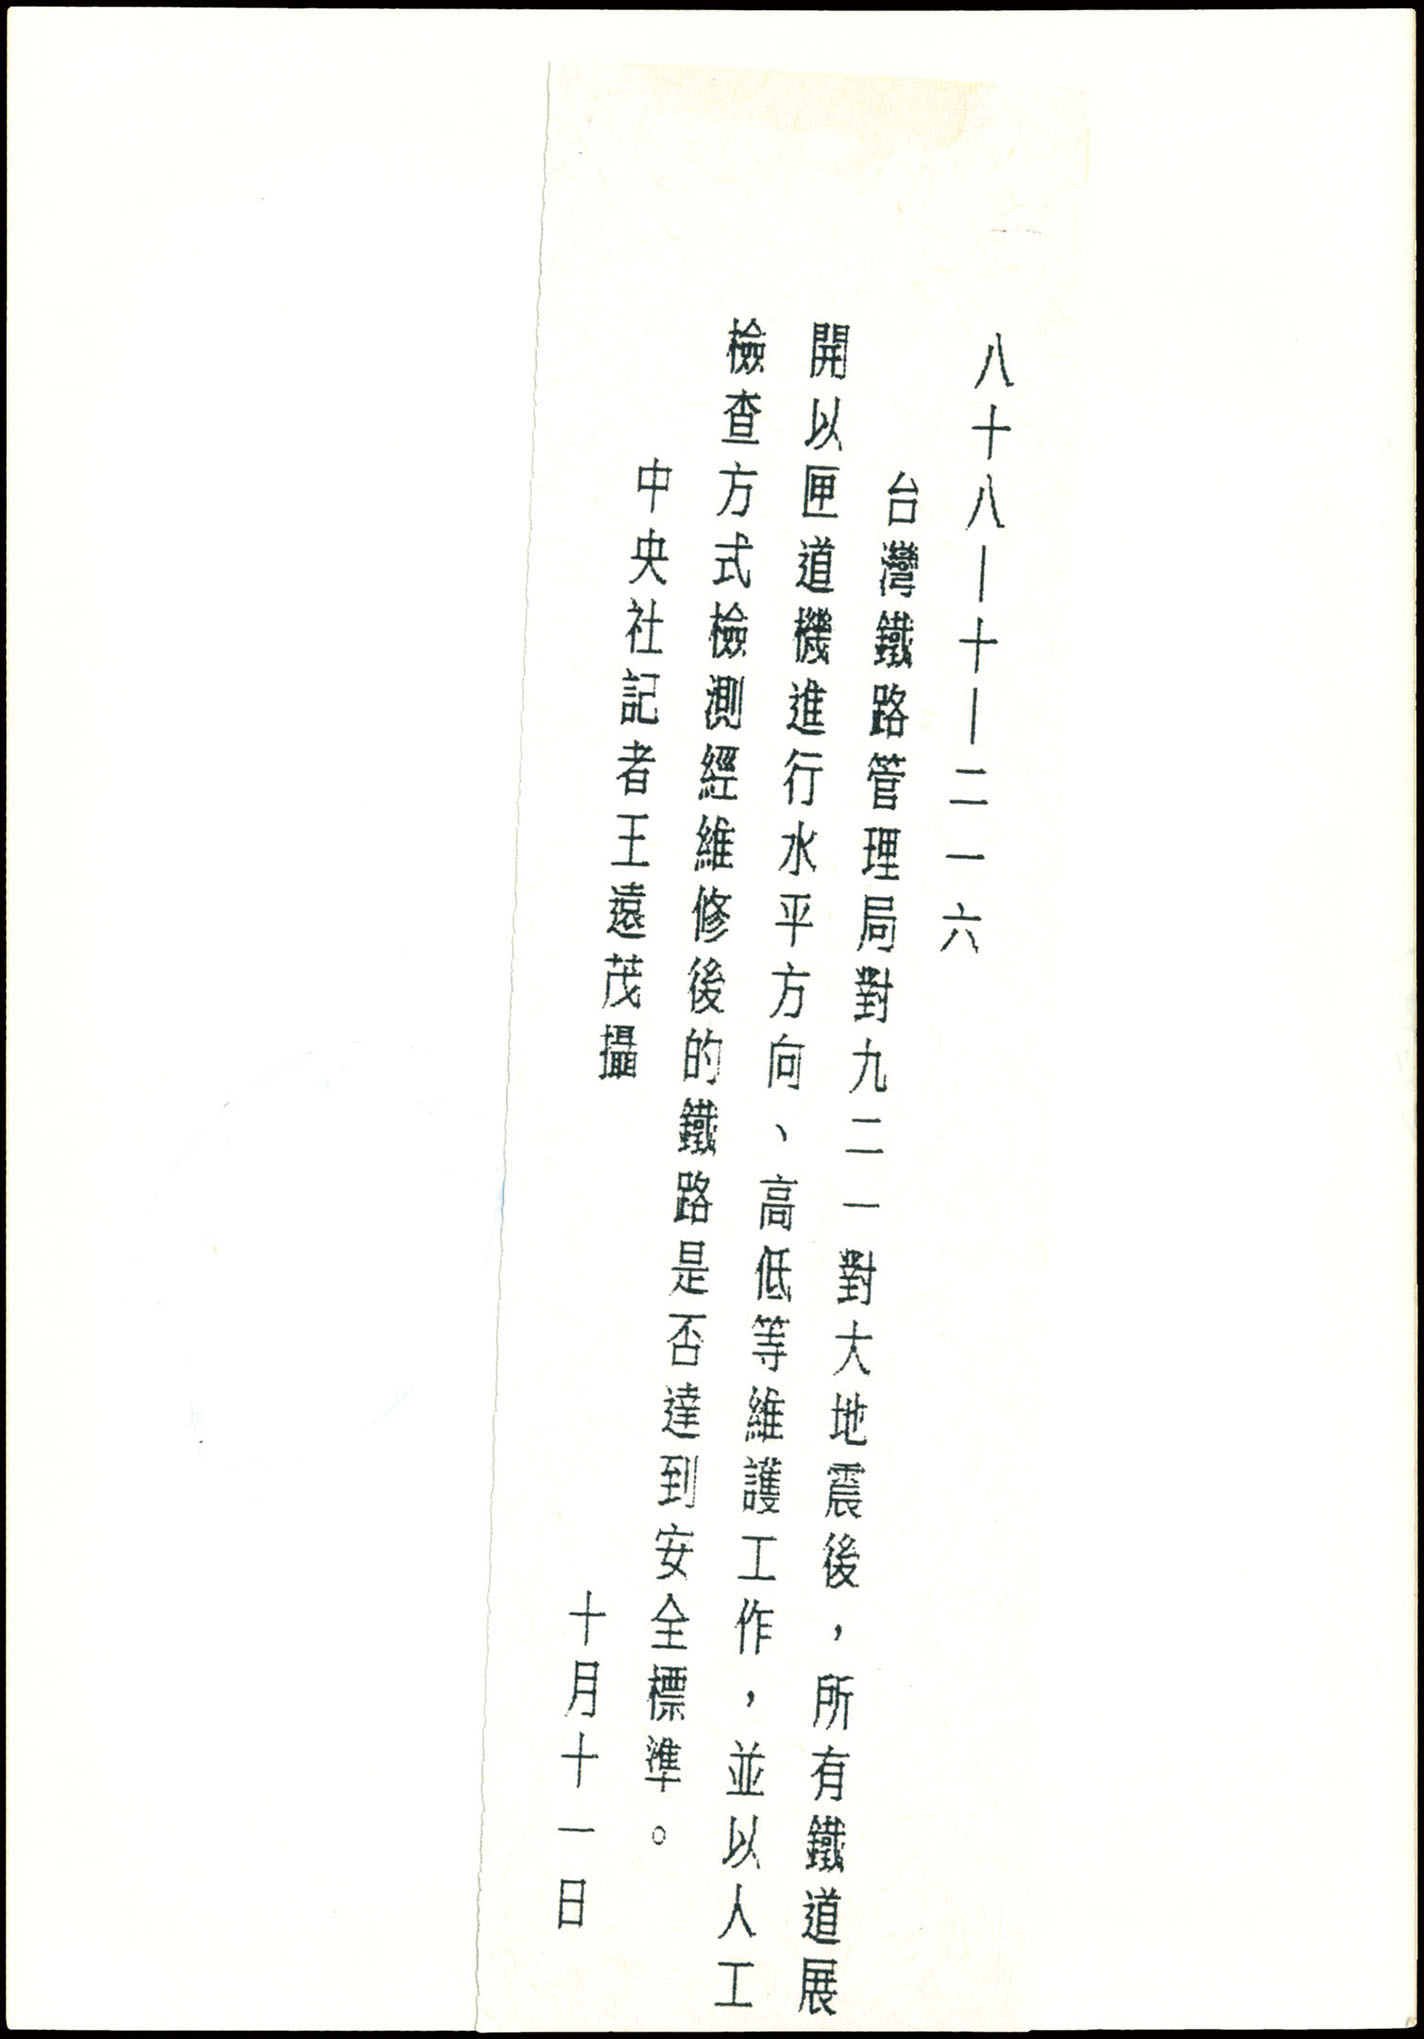 八十八—十—二一六
台灣鐵路管理局對九二一對大地震後，所有鐵道展
開以匣道機進行水平方向、高低等維護工作，並以人工
檢查方式檢測經維修後的鐵路是否達到安全標準。
中央社記者王遠茂攝
十月十一日